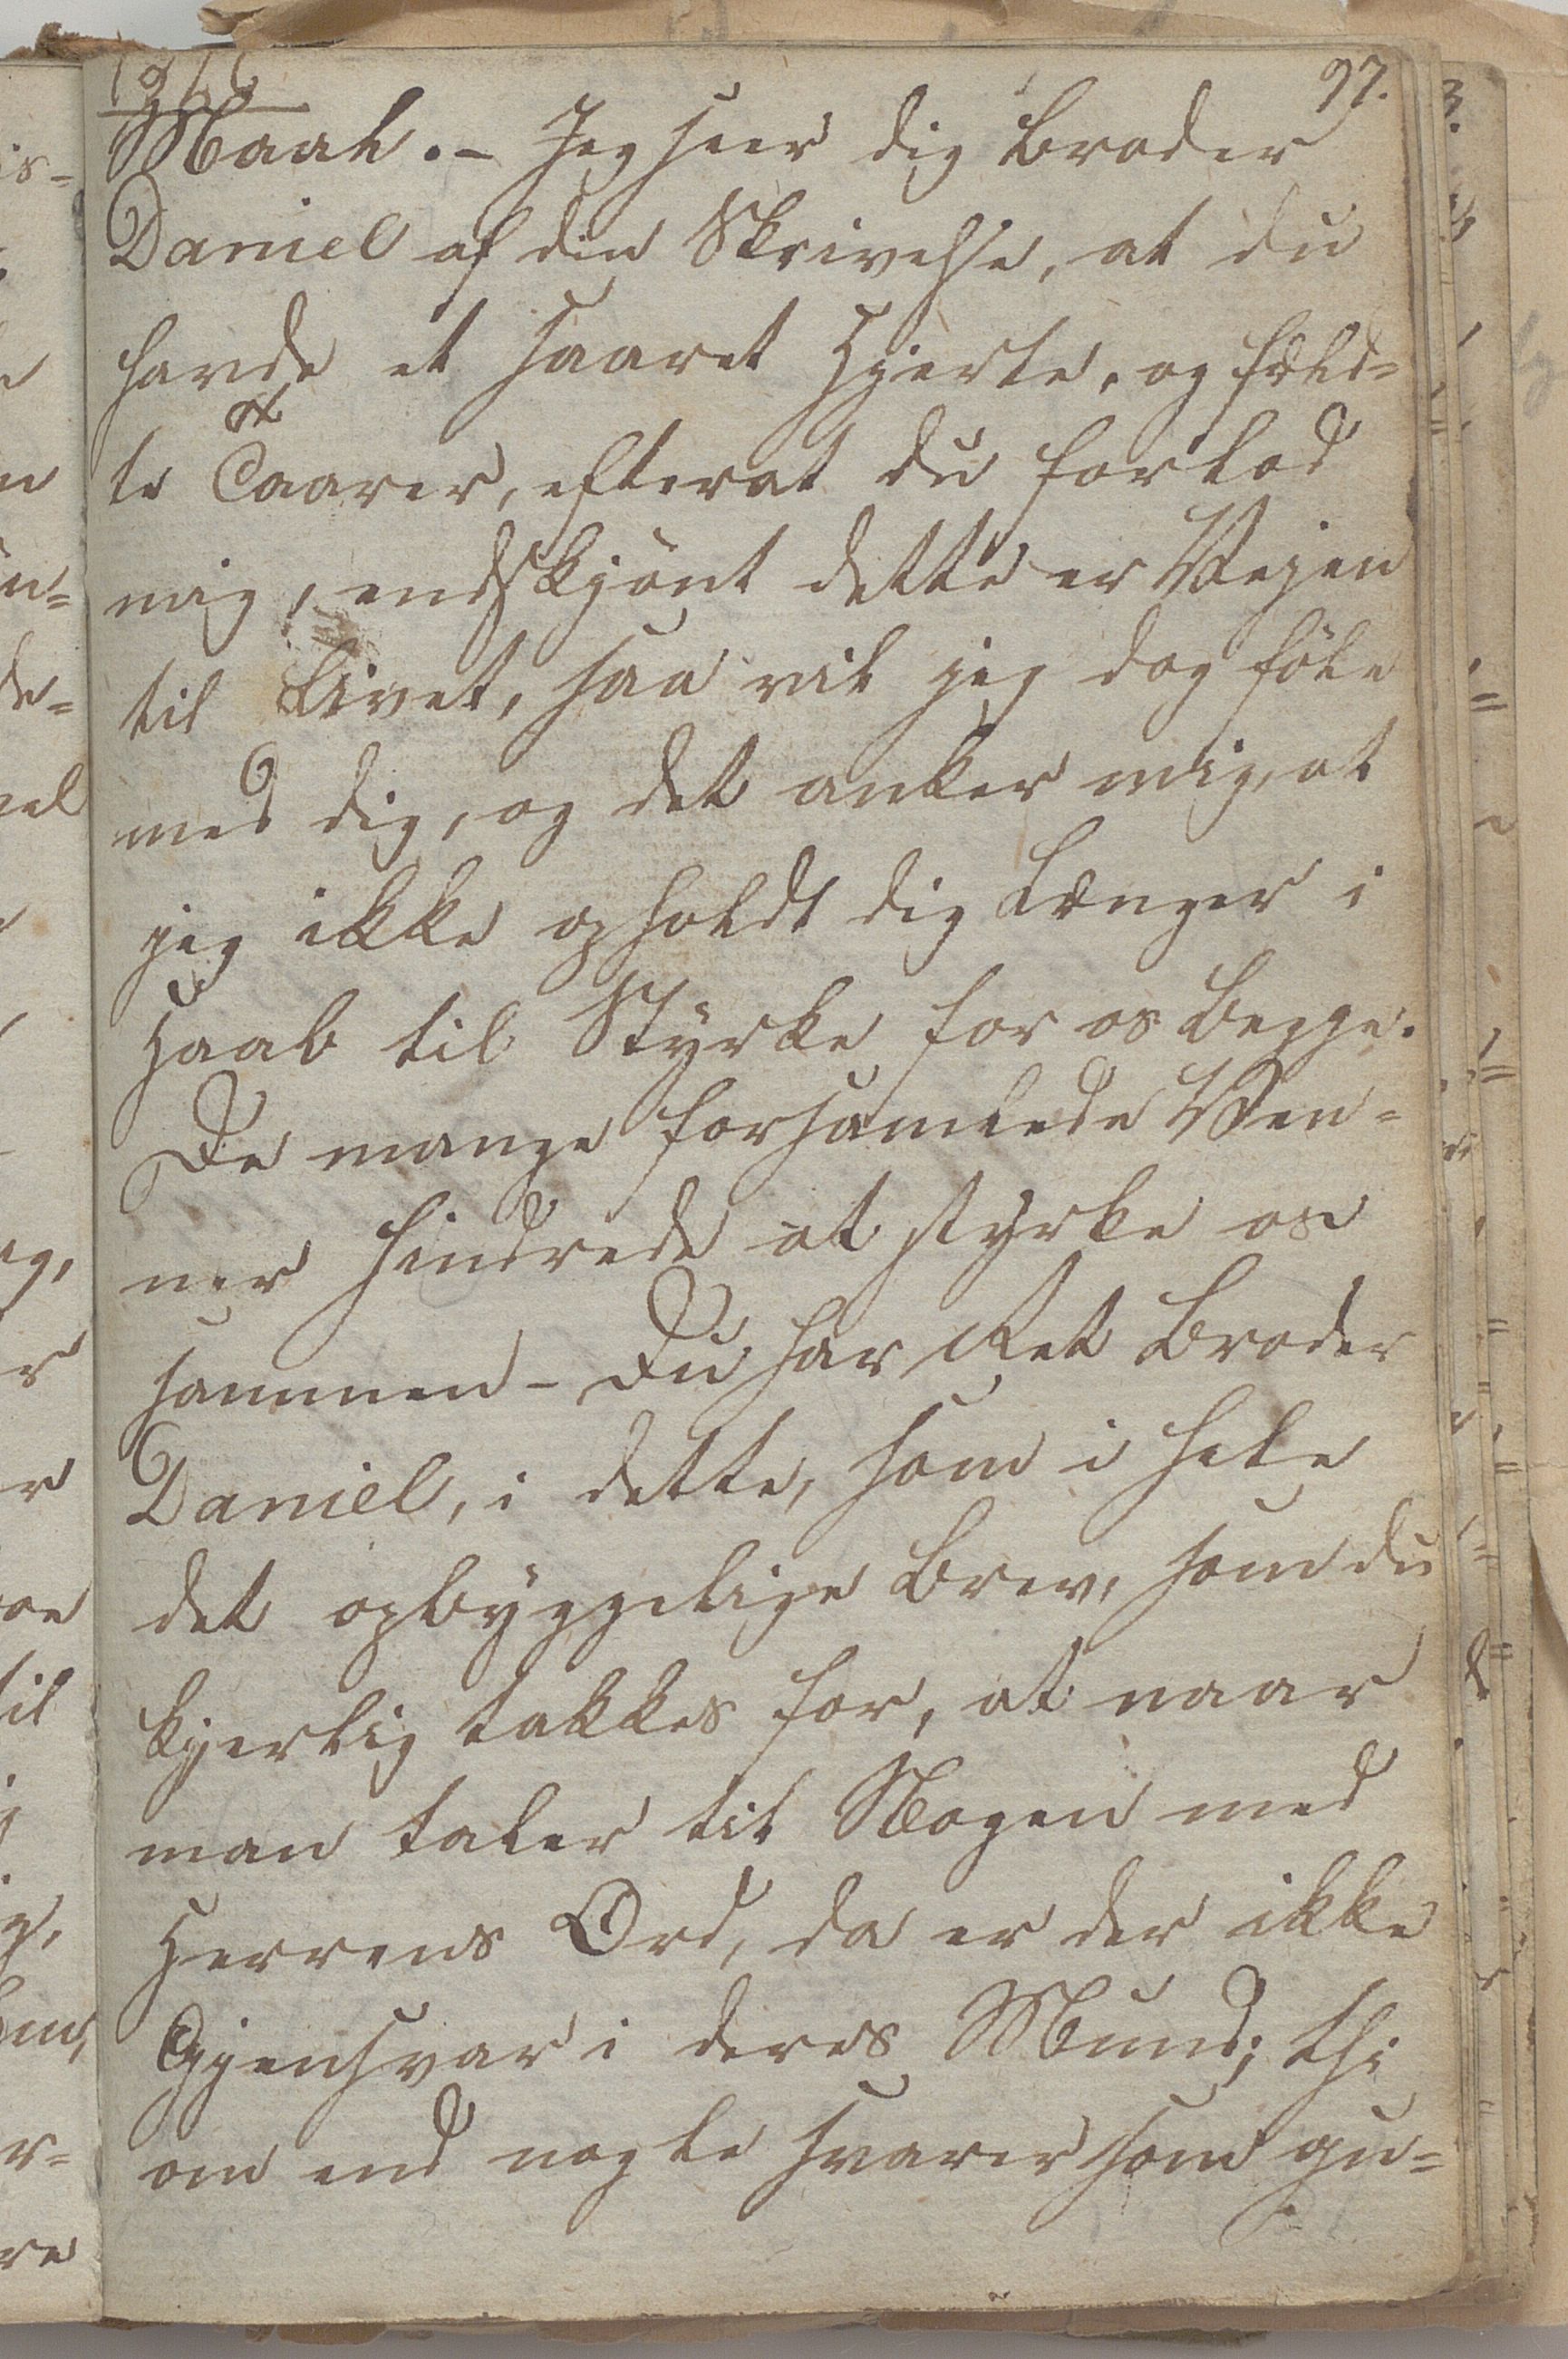 97.
Maal. – Jeg seer dig Broder
Daniel af din Skrivelse, at du
havde et saaret Hjerte, og fæld=
te Taarer, efterat du forlod
mig, endskjönt dette er Vejen
til Livet, saa vil jeg dog föle
med dig, og det anker mig, at
jeg ikke opholdt dig længer i
Haab til Styrke for os begge.
De mange forsamlede Ven=
ner hindrede at styrke os
sammen – Du har Ret Broder
Daniel, i dette, som i hele
det opbyggelige Brev, som du
kjerlig takkes for, at naar
man taler til Nogen med
Herrens Ord, da er der ikke
Gjensvar i deres Mund; thi
om end nogle svarer som gu=